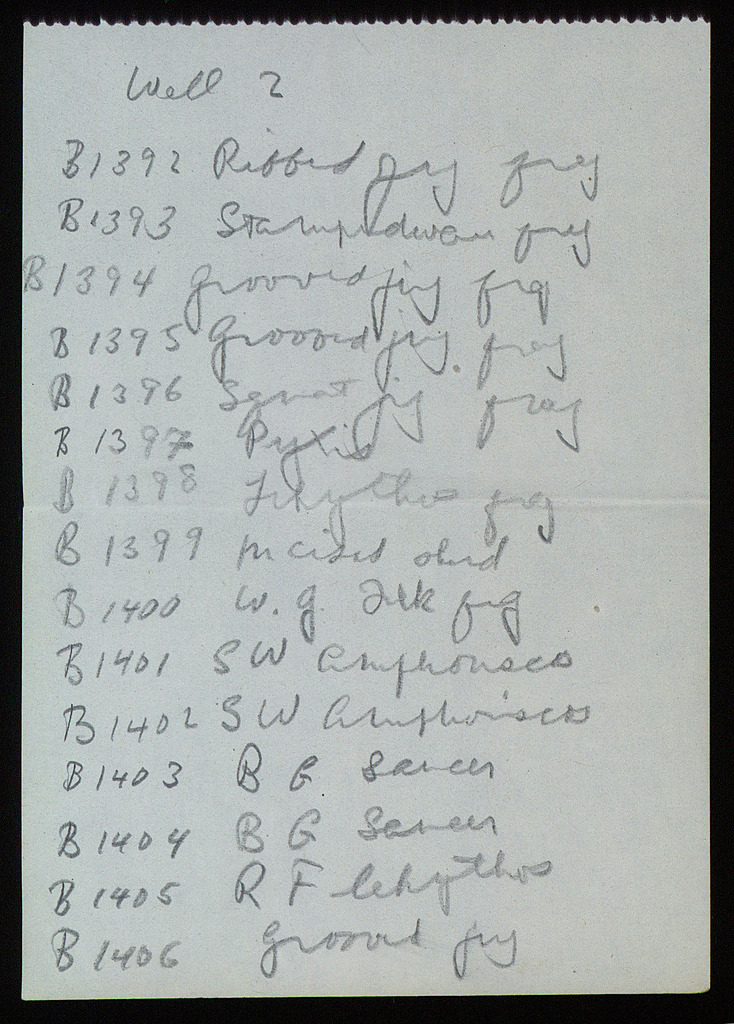 Well 2
B1392 Ribbed jug frag
B1393 Stamped ware frag
B1394 Grooved jug frag
B1395 Grooved jug frag
B1396 Squat jug frag
B1397 Pyxis
B1398 Lekythos frag
B1399 Incised sherd
B1400 W.g. Lek frag
B1401 SW Amphoriscos
B1402 SW Amphoriscos
B1403 B G Saucer
B1404 B G Saucer
B1405 R F lekythos
B1406 Grooved jug